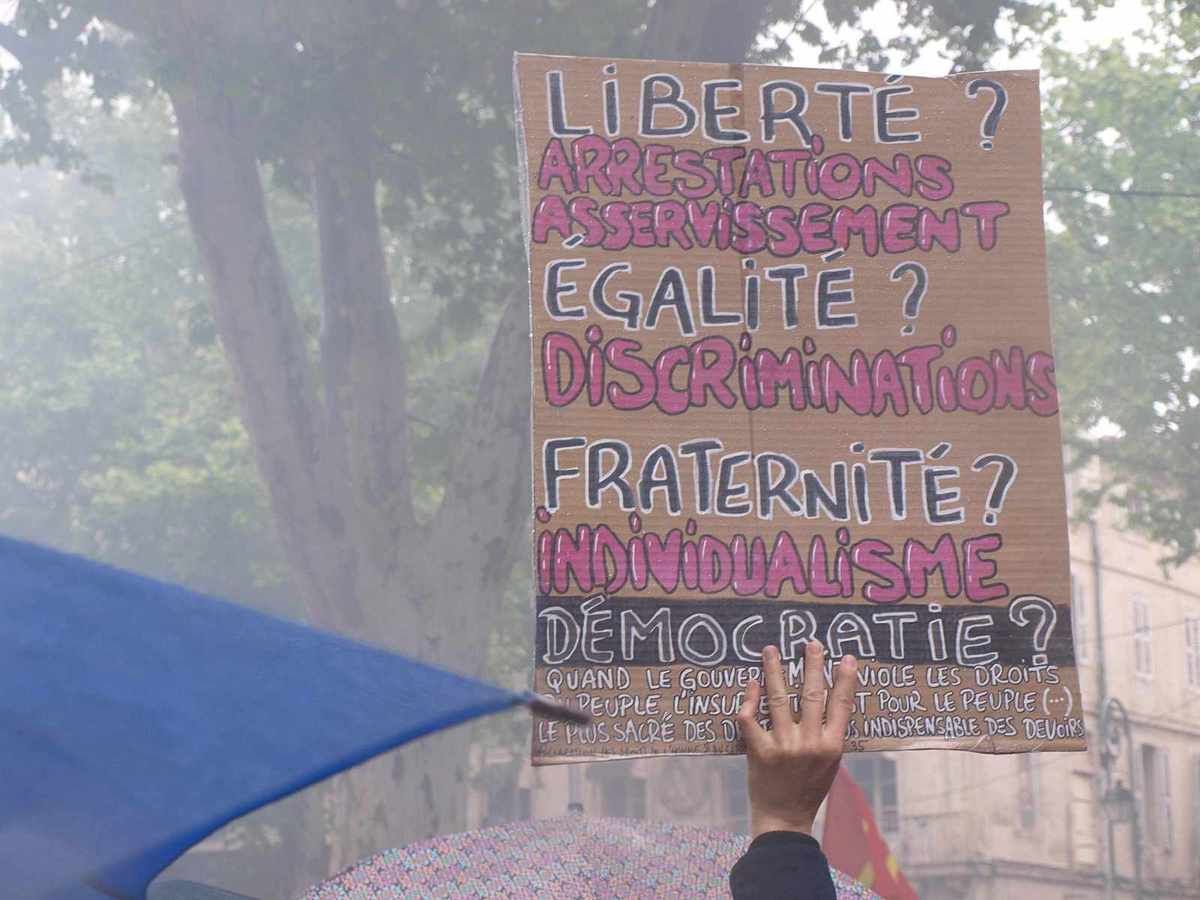 LIBERTÉ ?
ARRESTATIONS
ASSERVISSEMENT
ÉGALITÉ ?
DISCRIMINATIONS
FRATERNITÉ ?
INDIVIDUALISME
DÉMOCRATIE ?
QUAND LE GOUVERNEMENT VIOLE LES DROITS
PEUPLE L'INSURRECTION EST POUR LE PEUPLE (...)
LE PLUS SACRÉ DES INDISPENSABLE DES DEVOIRS
35